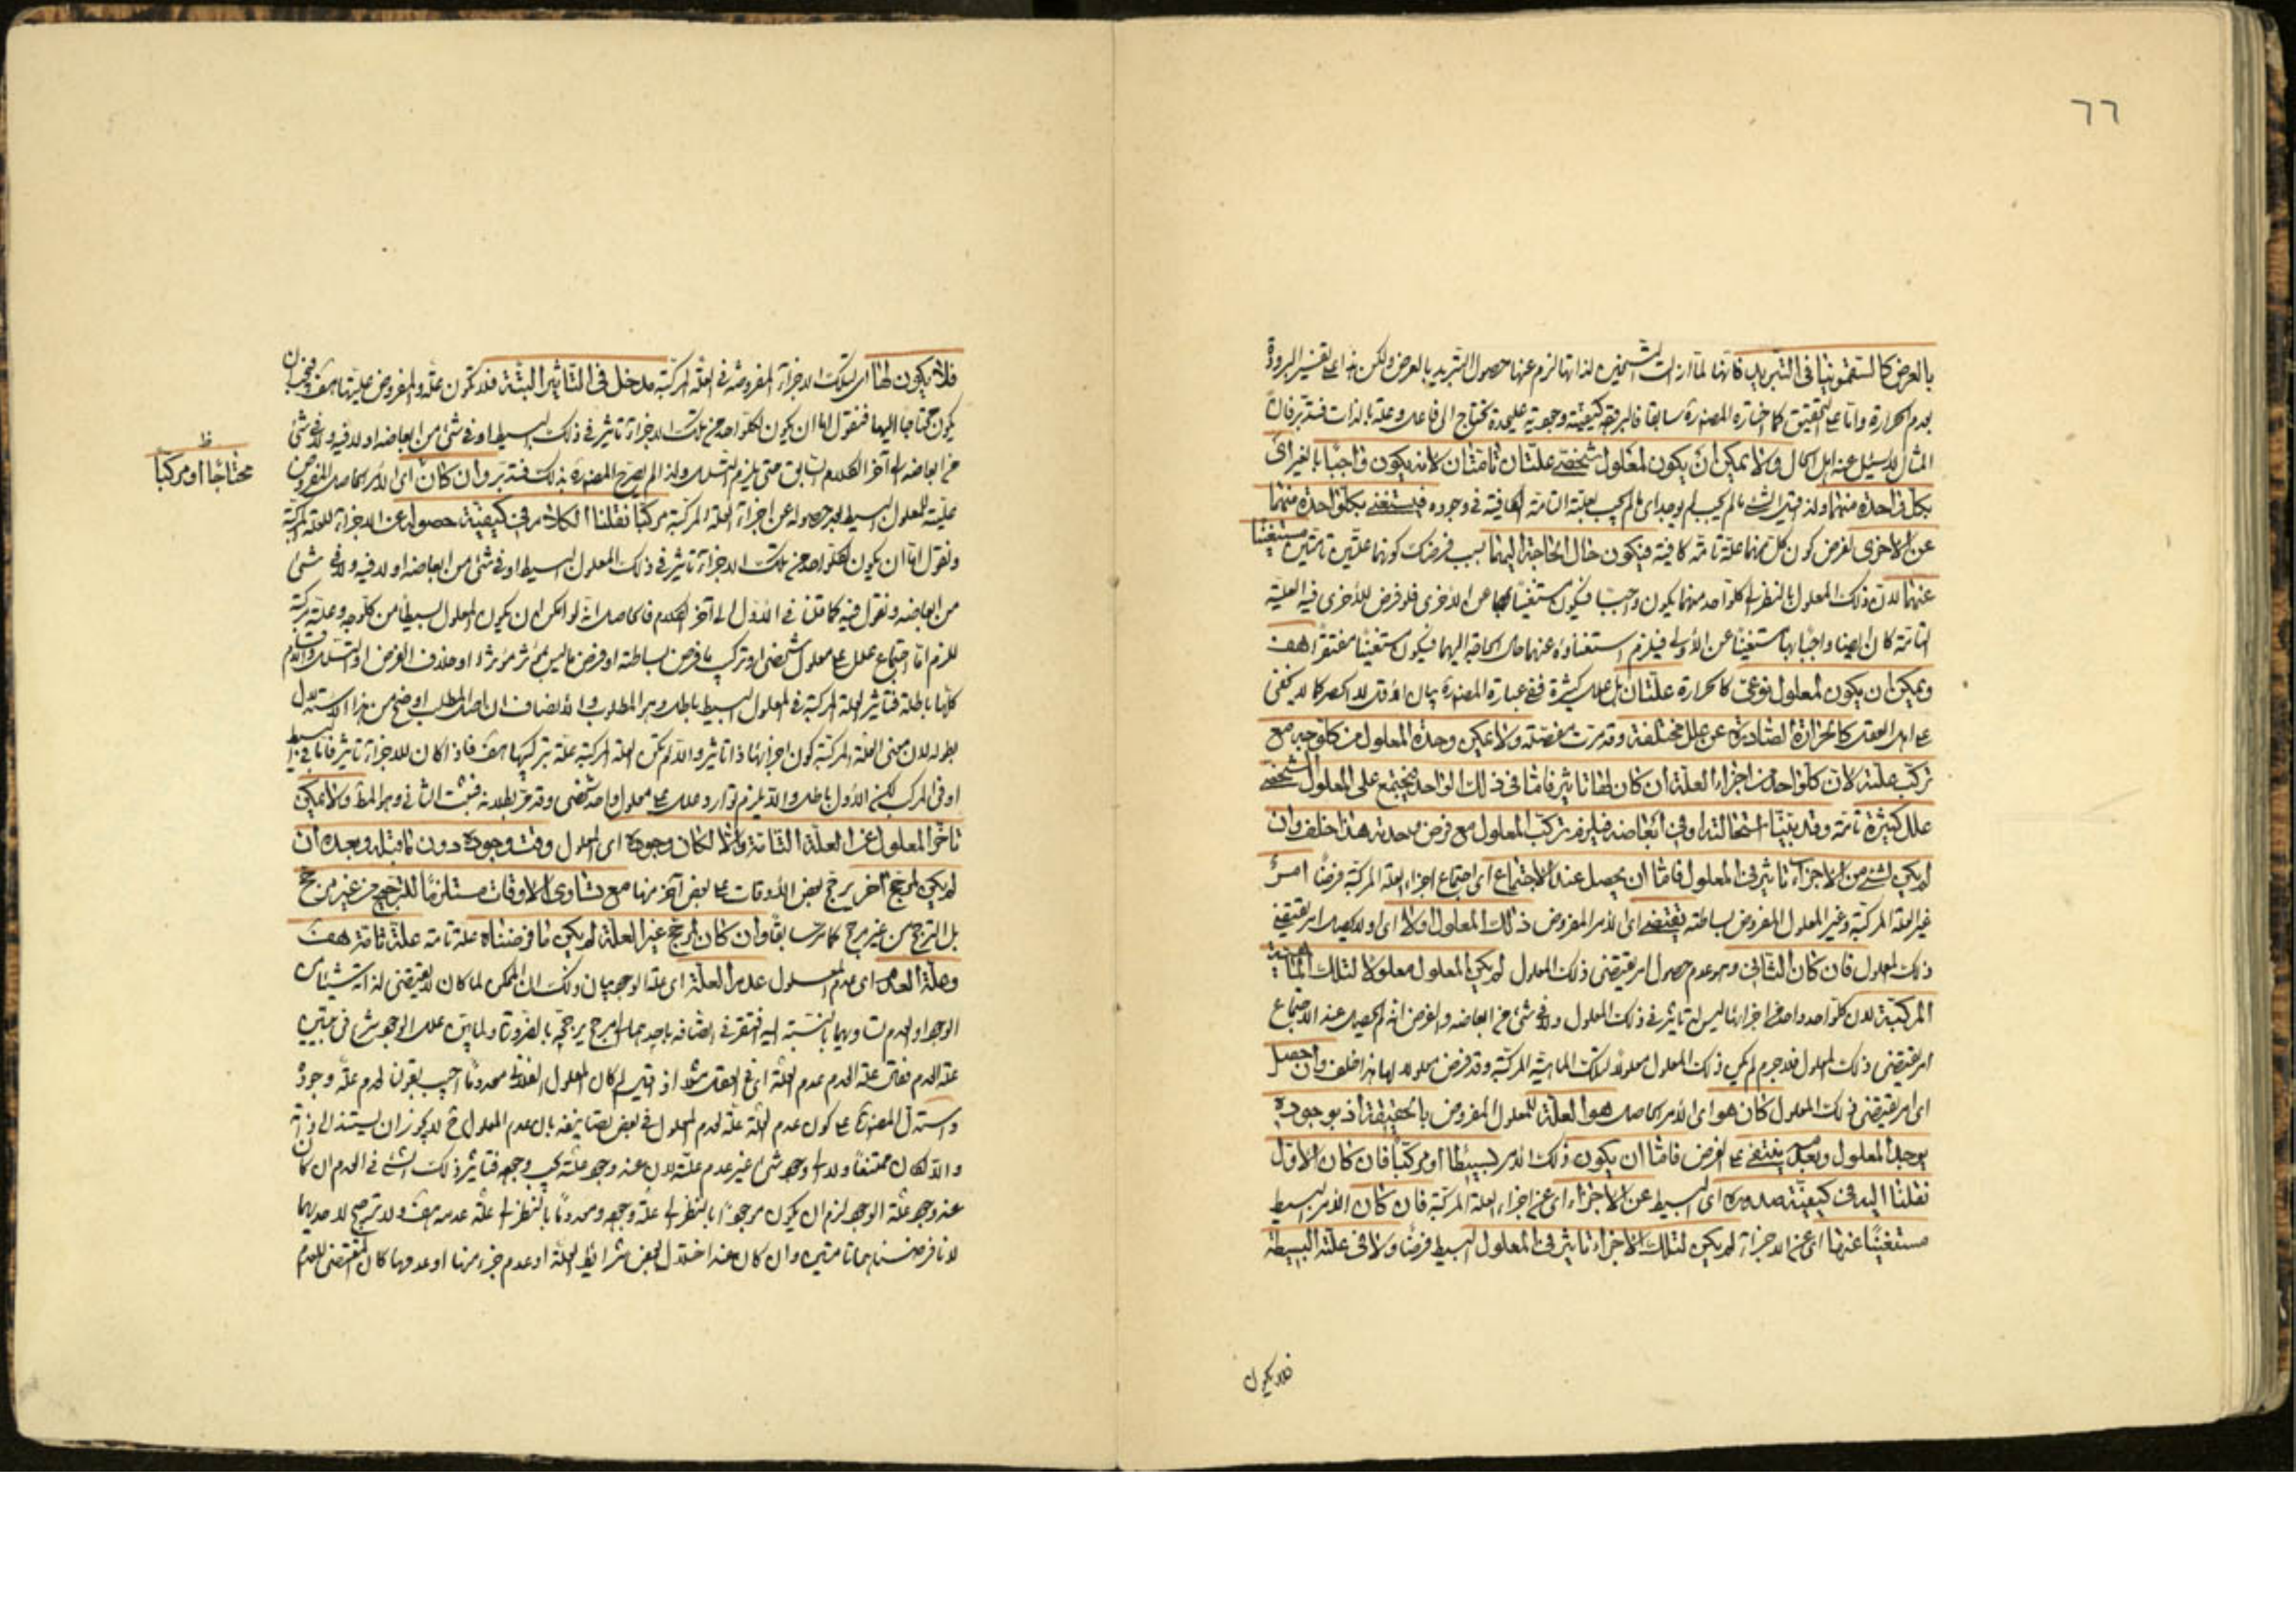 ٦٦
بالعرض كالسقمونيا في التبريد فانها لما ازالت التسخين لذاتها لزم عنها حصول التبريد بالعرض ولكن هذا على تفسير البرودة
بعدم الحرارة واما على التحقيق كما اختاره المصنف سابقا فالبرودة كيفية وجودية عليحدة تحتاج الى فاعل وعلة بالذات فتدبر فان
المثال لا يسئل عنه اهل الحال ولا يمكن ان يكون لمعلول شخصي علتان تامتان لانه يكون واجبا بالغير اى
بكل واحدة منهما ولذا قيل الشئ ما لم يجب لم يوجد اى ما لم يجب بعلته التامة الكافية في وجوده فيستغني بكل واحدة منهما
عن الاخرى لفرض كون كل منهما علة تامة كافية فيكون حال الحاجة اليهما بسبب فرضك كونهما علتين تامتين مستغنيا
عنهما لان ذلك المعلول بالنظر الى كل واحد منهما يكون واجبا فيكون مستغنيا بها عن الاخرى فلو فرض للاخرى فيه العلية
التامة كان ايضا واجبا بها مستغنيا عن الاولى فيلزم استغناؤه عنهما حال الحاجة اليهما فيكون مستغنيا مفتقرا هف
ويمكن ان يكون لمعلول نوعي كالحرارة علتان بل علل كثيرة ففي عبارة المصنف بيان الاقل لا الحصر كما لا يخفى
على اهل العقل كالحرارة الصادرة عن علل مختلفة وقد مرت مفصلة ولا يمكن وحدة المعلول من كل وجه مع
تركب علته لان كل واحد من اجزاء العلة ان كان لها تاثير فاما في ذلك الواحد فيجتمع على المعلول الشخصي
علل كثيرة تامة وقد بينا استحالته او في ابعاضه فيلزم تركب المعلول مع فرض وحدته هذا خلف وان
لم يكن لشئ من الاجزاء تاثير في المعلول فاما ان يحصل عند الاجتماع اى اجتماع اجزاء العلة المركبة فرضا امر
غير العلة المركبة وغير المعلول المفروض بساطته يقتضي اى الامر المفروض ذلك المعلول اولا اى او لا يحصل امر يقتضي
ذلك المعلول فان كان الثاني وهو عدم حصول امر يقتضي ذلك المعلول لم يكن المعلول معلولا لتلك الماهية
المركبة لان كل واحد واحد من اجزائها ليس له تاثير في ذلك المعلول ولا في شئ من ابعاضه والفرض انه لم يحصل عند الاجتماع
امر يقتضي ذلك المعلول فلا جرم لم يكن ذلك المعلول معلولا لتلك الماهية المركبة وقد فرض معلولا لها هذا خلف وان حصل
اى امر يقتضي ذلك المعلول كان هو اى الامر الحاصل هو العلة للمعلول المفروض بالحقيقة اذ بوجوده
يوجد المعلول وبعدمه ينتفي على الفرض فاما ان يكون ذلك الامر بسيطا او مركبا فان كان الاول
نقلنا اليه في كيفية صدوره اى البسيط عن الاجزاء اى عن اجزاء العلة المركبة فان كان الامر البسيط
مستغنيا عنها اى عن الاجزاء لم يكن لتلك الاجزاء تاثير في المعلول البسيط فرضا ولا في علته البسيطة
فلا يكون
فلا يكون لها اى لتلك الاجزاء المفروضة في العلة المركبة مدخل في التاثير البتة فلا تكون علة والمفروض عليتها هف فيجب ان
يكون محتاجا اليها فنقول اما ان يكون لكل واحد من تلك الاجزاء تاثير في ذلك البسيط او في شئ من ابعاضه او لا فيه ولا في شئ
من ابعاضه الى آخر الكلام السابق حتى يلزم التسلسل ولذا لم يصرح المصنف بذلك فتدبر وان كان اى الامر الحاصل المفروض
ظ
محتاجا او مركبا
عليته للمعلول البسيط بعد حصوله عن اجزاء العلة المركبة مركبا نقلنا الكلام في كيفية حصوله عن الاجزاء للعلة المركبة
ونقول اما ان يكون لكل واحد من تلك الاجزاء تاثير في ذلك المعلول البسيط او في شئ من ابعاضه او لا فيه ولا في شئ
من ابعاضه ونقول فيه كما قلنا في الاول الى آخر الكلام فالحاصل انه لو امكن ان يكون المعلول بسيطا من كل وجه وعلته مركبة
للزم اما اجتماع علل على معلول شخصي او تركب ما فرض بساطته او فرض ما ليس بمؤثر مؤثرا او خلاف الفرض او التسلسل واللوازم
كلها باطلة فتاثير العلة المركبة في المعلول البسيط باطل وهو المطلوب والانصاف ان اصل المطلب اوضح من هذا الاستدلال
بطوله لان معنى العلة المركبة كون اجزائها ذا تاثير والا لم تكن العلة المركبة علة بتركيبها هف فاذا كان للاجزاء تاثير فاما في البسيط
او في المركب لكن الاول باطل والا يلزم توارد علل على معلول واحد شخصي وقد مر بطلانه فيثبت الثاني وهو المط ولا يمكن
تاخر المعلول عن العلة التامة والا لكان وجوده اى المعلول وقت وجوده دون ما قبله وبعده ان
لم يكن لمرجح آخر يرجح بعض الاوقات على بعض آخر منها مع تساوى الاوقات مستلزما للترجيح من غير مرجح
بل الترجح من غير مرجح كما مر سابقا وان كان لمرجح غير العلة لم يكن ما فرضناه علة تامة علة تامة هف
وعلة العدم اى عدم المعلول عدم العلة اى علة الوجود بيان ذلك ان الممكن لما كان لا يقتضي لذاته شيئا من
الوجود والعدم لتساويهما بالنسبة اليه فيفتقر في اتصافه باحدهما الى مرجح يرجحه بالضرورة ولما بين علل الوجود شرع في تبيين
علة العدم فقال علة العدم عدم العلة اى في العقل اذ قيل لم كان المعلول الفلاني معدوما اجيب بقولنا لعدم علة وجوده
واستدل المصنف على كون عدم العلة علة لعدم المعلول في بعض تصانيفه بان عدم المعلول لا يجوز ان يستند الى ذاته
والا لكان ممتنعا ولا الى وجود شئ غير عدم علته لان عند وجود علته يجب وجوده فتاثير ذلك الشئ في العدم ان كان
عند وجود علة الوجود لزم ان يكون موجودا بالنظر الى علة وجوده ومعدوما بالنظر الى علة عدمه هف ولا ترجيح لاحديهما
لانا فرضناهما تامتين وان كان عند اختلال بعض شرائط العلة او عدم جزء منها او عدمها كان المقتضي للعدم